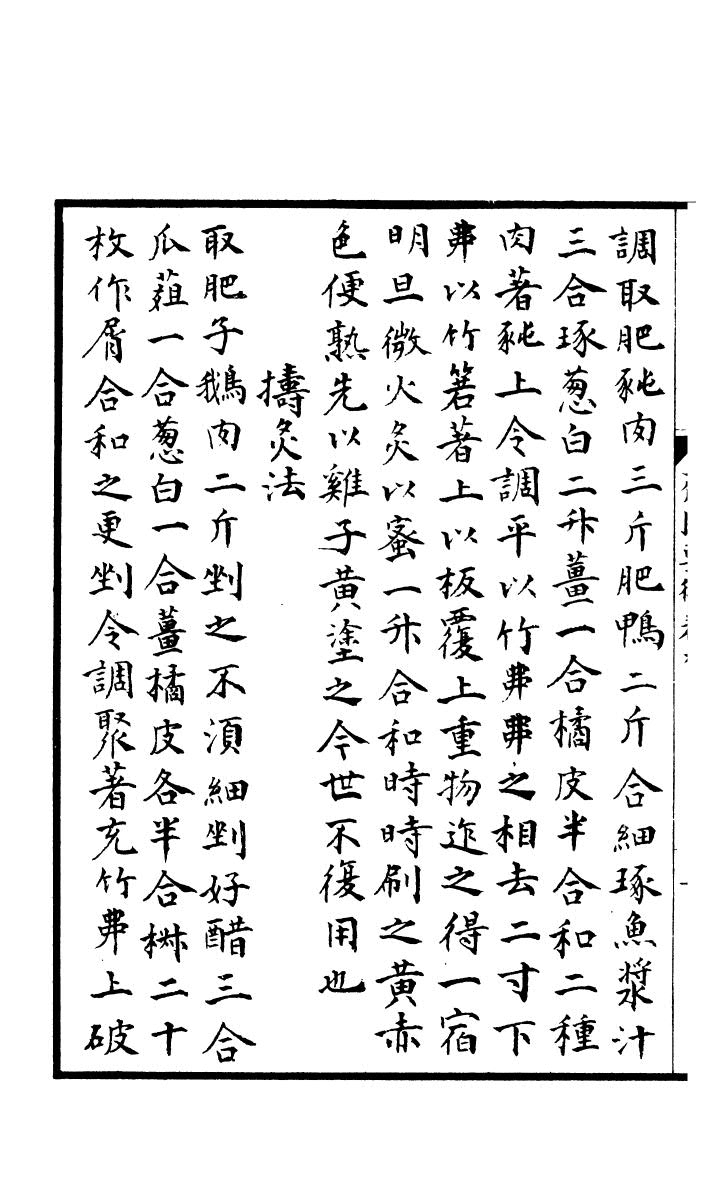 調取肥豘肉三斤肥鴨二斤合細琢魚漿汁
三合琢葱白二升薑一合橘皮半合和二種
肉著豘上令調平以竹弗弗之相去二寸下
弗以竹箬著上以板覆上重物迮之得一宿
明旦微火炙以蜜一升合和時時刷之黄赤
色便熟先以雞子黄塗之今世不復用也
擣炙法
取肥子鵝肉二斤剉之不湏細剉好醋三合
瓜菹一合葱白一合薑橘皮各半合椒二十
枚作屑合和之更剉令調聚著充竹弗上破